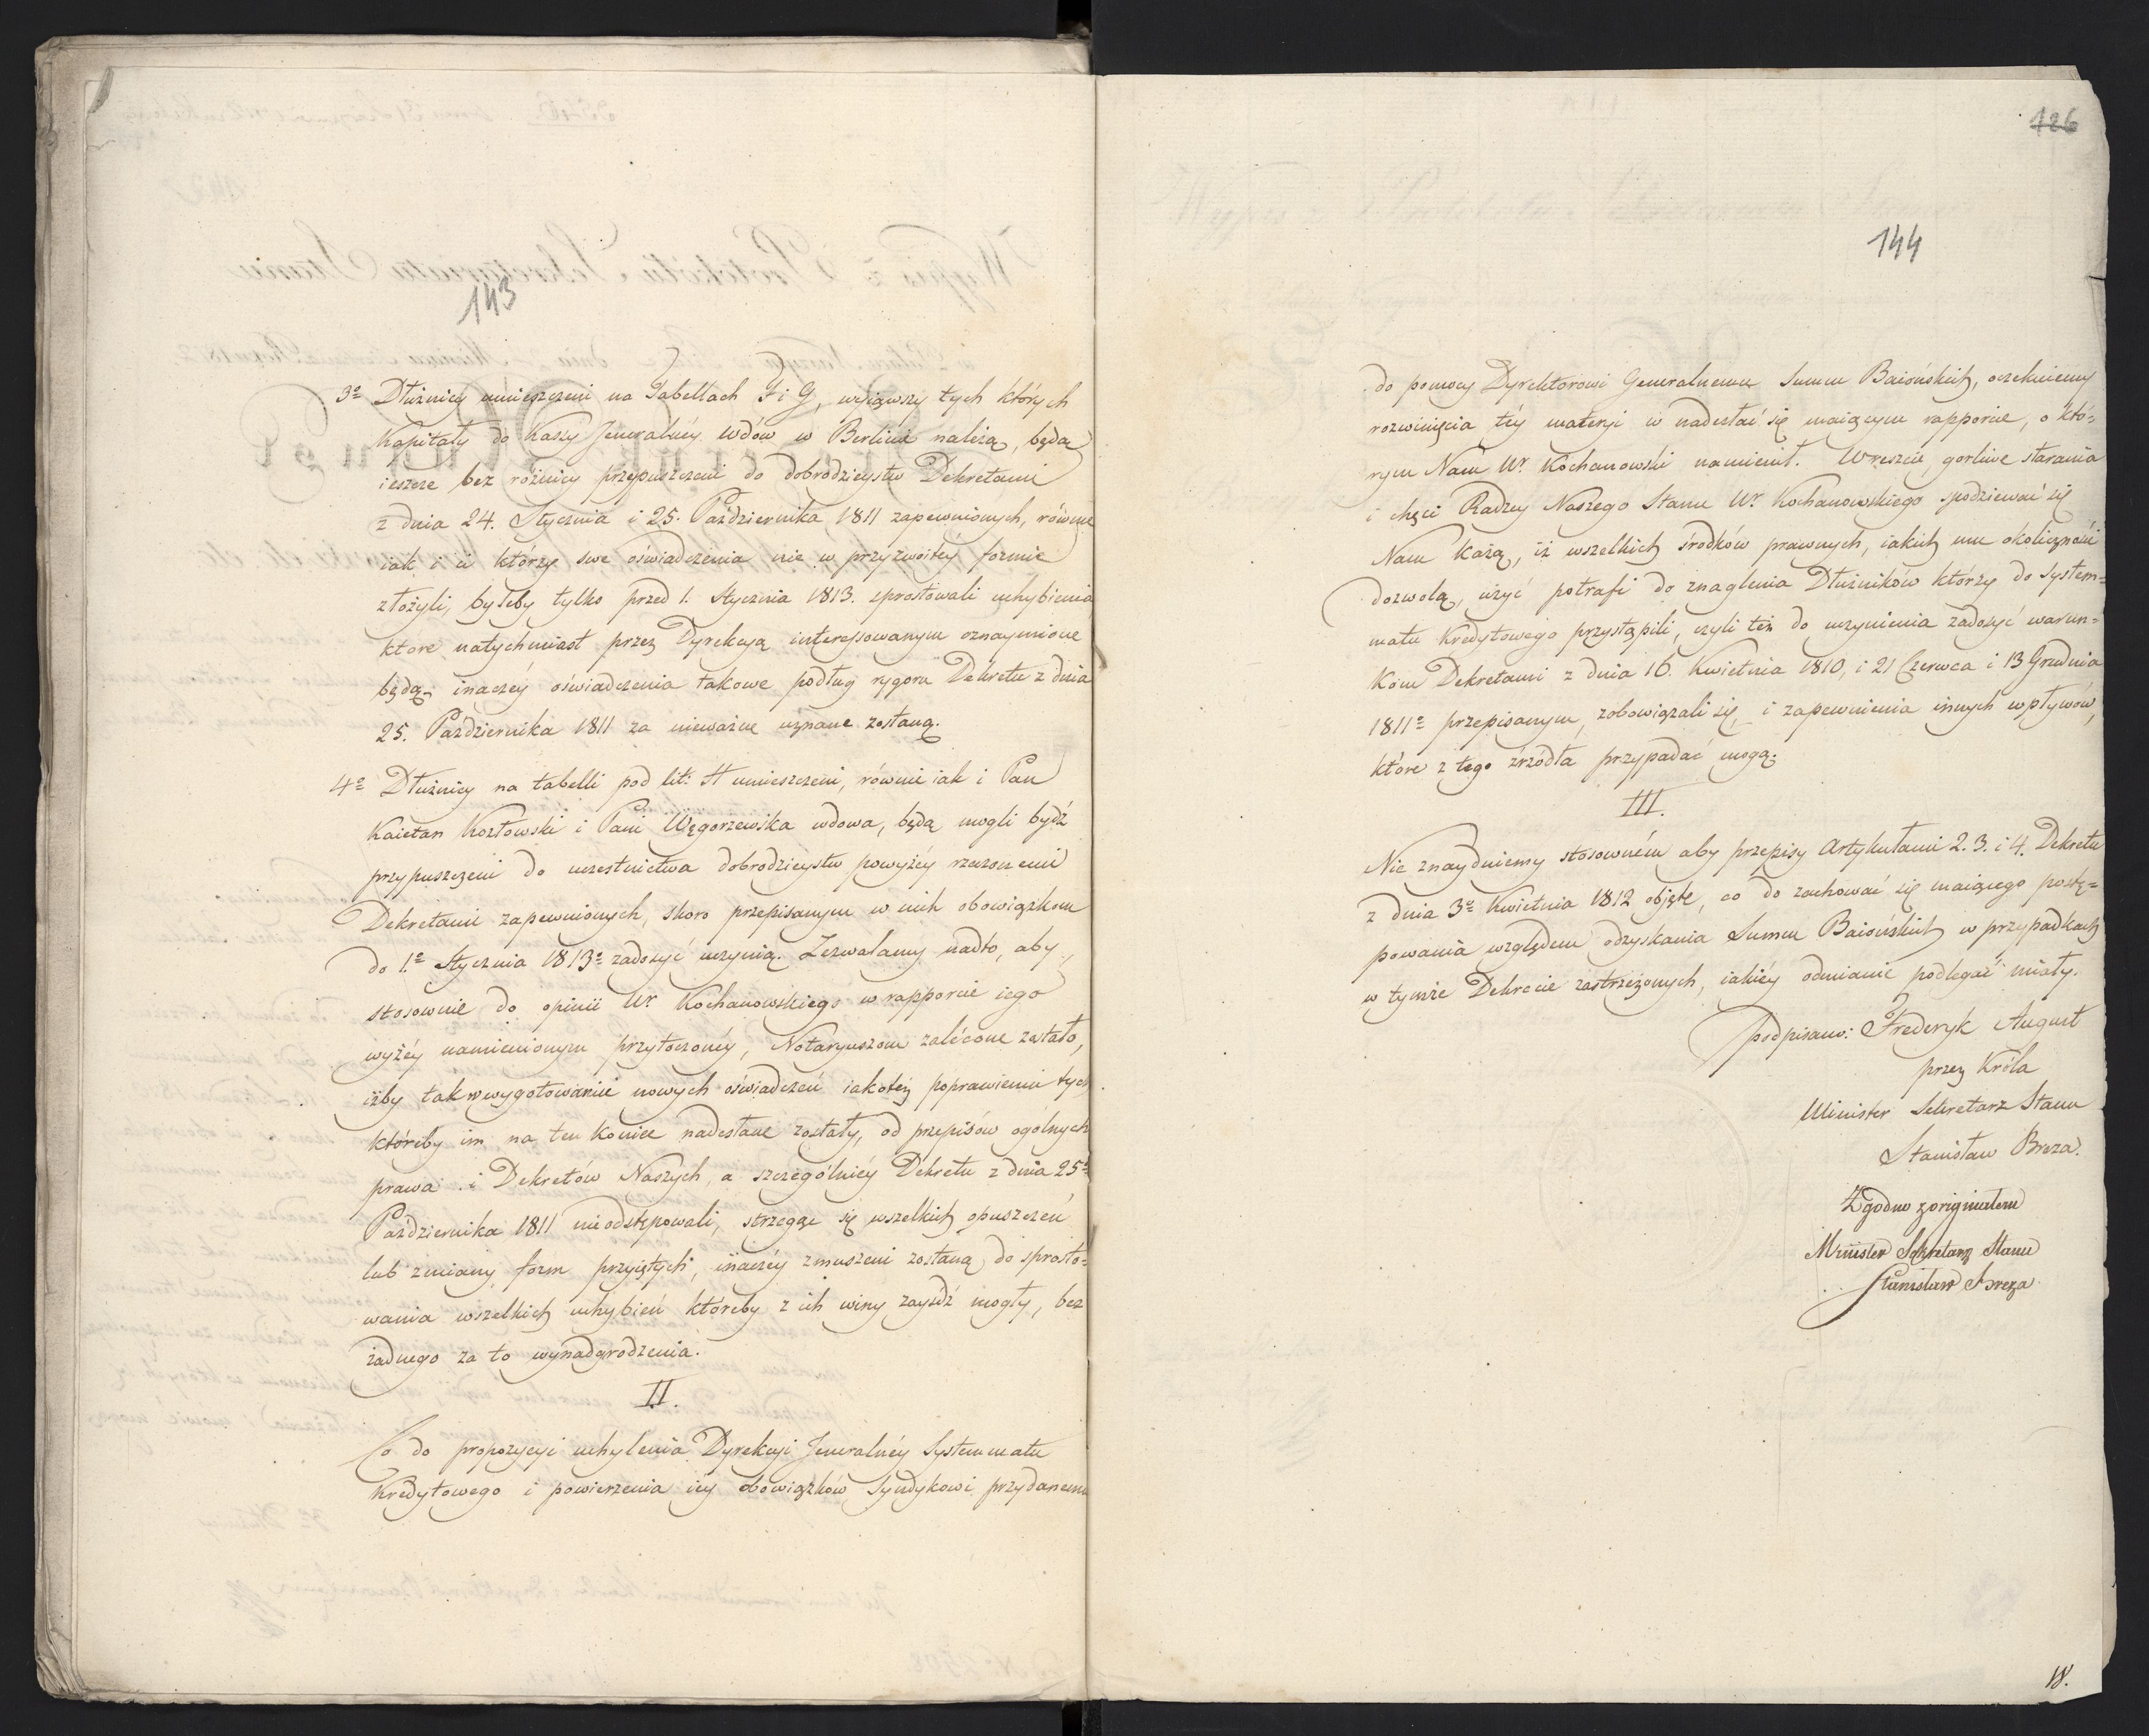 143
3º Dłużnicy umieszczeni na Tabellach F i G, wyiąwszy tych których
Kapitały do Kassy Jeneralnéy wdów w Berlinie należą, będą
ieszcze bez różnicy przypuszczeni do dobrodzieystw Dekretami
z dnia 24. Stycznia i 25. Października 1811 zapewnionych, równie
iak i ci którzy swe oświadczenia nie w przyzwoitéy formie
złożyli, byleby tylko przed 1. Stycznia 1813. sprostowali uchybienia
które natychmiast przez Dyrekcyą interessowanym oznaymione
będą, inaczéy oświadczenia takowe podług rygoru Dekretu z dnia
25. Października 1811 za nieważne uznane zostaną.
4º Dłużnicy na tabelli pod lit: H umieszczeni, równie iak i Pan
Kaietan Kozłowski i Pani Węgorzewska wdowa, będą mogli bydź
przypuszczeni do uczestnictwa dobrodzieystw powyżéy rzeczonemi
Dekretami zapewnionych, skoro przepisanym w nich obowiązkom
do 1º Stycznia 1813º zadosyć uczynią. Zezwalamy nadto, aby,
stosownie do opinii Ur. Kochanowskiego w rapporcie iego
wyżéy namienionym przytoczonéy, Notaryuszom zalécone zostało,
iżby tak w wygotowaniu nowych oświadczeń iakoteż poprawieniu tych
któreby im na ten koniec nadesłane zostały, od przepisów ogólnych
prawa i Dekretów Naszych, a szczególniéy Dekretu z dnia 25º
Października 1811 nieodstępowali, strzegąc się wszelkich opuszczeń
lub zmiany form przyiętych, inaczéy zmuszeni zostaną do sprosto=
wania wszelkich uchybień któreby z ich winy zayść mogły, bez
żadnego za to wynadgrodzenia.
II.
Co do propozycyi uchylenia Dyrekcyi Jeneralnéy Systemmatu
Kredytowego i powierzenia iéy obowiązków Syndykowi przydanemu
126
144
do pomocy Dyrektorowi Generalnemu Summ Baiońskich, oczekuiemy
rozwinięcia téy materyi w nadesłać się maiącym rapporcie, o któ=
rym Nam Ur. Kochanowski namienił. Wreszcie, gorliwe starania
i chęci Radzcy Naszego Stanu Ur. Kochanowskiego spodziewać się
Nam każą, iż wszelkich środków prawnych, iakich mu okoliczności
dozwolą, użyć potrafi do znaglenia Dłużników którzy do system=
matu Kredytowego przystąpili, czyli też do uczynienia zadosyć warun=
kom Dekretami z dnia 16. Kwietnia 1810, i 21 Czerwca i 13 Grudnia
1811º przepisanym, zobowiązali się, i zapewnienia innych wpływów,
które z tego źrzódła przypadać mogą.
III.
Nie znayduiemy stosowném aby przepisy Artykułami 2. 3. i 4. Dekretu
z dnia 3º Kwietnia 1812 objęte, co do zachować się maiącego postę=
powania względem odzyskania Summ Baiońskich w przypadkach
w tymże Dekrecie zastrzeżonych, iakiéy odmianie podlegać miały.
podpisano: Frederyk August
przez Króla
Minister Sekretarz Stanu
Stanisław Breza.
Zgodno z originałem
Minister Sekretarz Stanu
Stanisław Breza